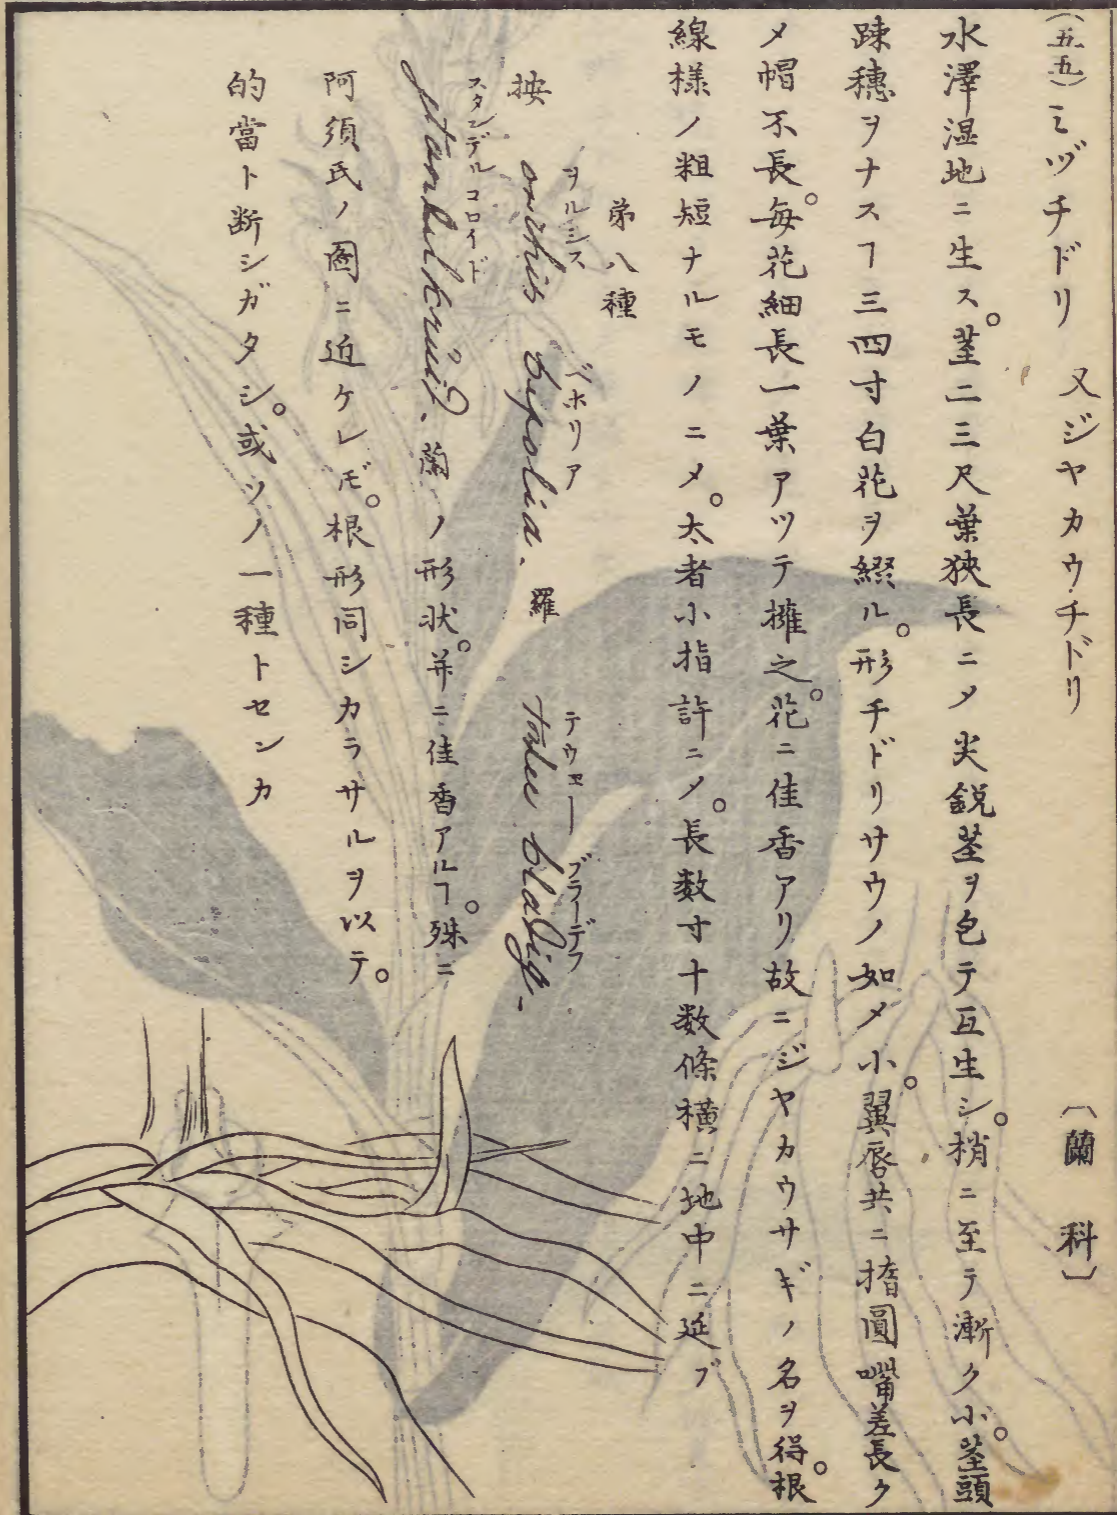 (五五)ミヅチドリ 又ジヤカウチドリ 〔蘭科〕
水澤湿地ニ生ス。茎二三尺葉狹長ニメ尖鋭茎ヲ包テ互生シ。梢ニ至テ漸ク小。茎頭
踈穗ヲナスヿ三四寸白花ヲ綴ル。形チドリサウノ如メ小。翼唇共ニ撱圓嘴差長ク
メ帽不長。每花細長一葉アツテ擁之。花ニ佳香アリ故ニジヤカウサギノ名ヲ得。根
線様ノ粗短ナルモノニメ。太者小指許ニメ。長数寸十数條横ニ地中ニ延ブ
第八種
按 orchis bifolia. 羅 twee bladig.
ヲルシス ビホリア テウエー ブラーデフ
スタンデルコロイド
standelkruid. 蘭 ノ形状。并ニ佳香アルヿ。殊ニ
阿須氏ノ圖ニ近ケレㇶ。根形同シカラサルヲ以テ。
的當ト断シガタシ。或ソノ一種トセンカ